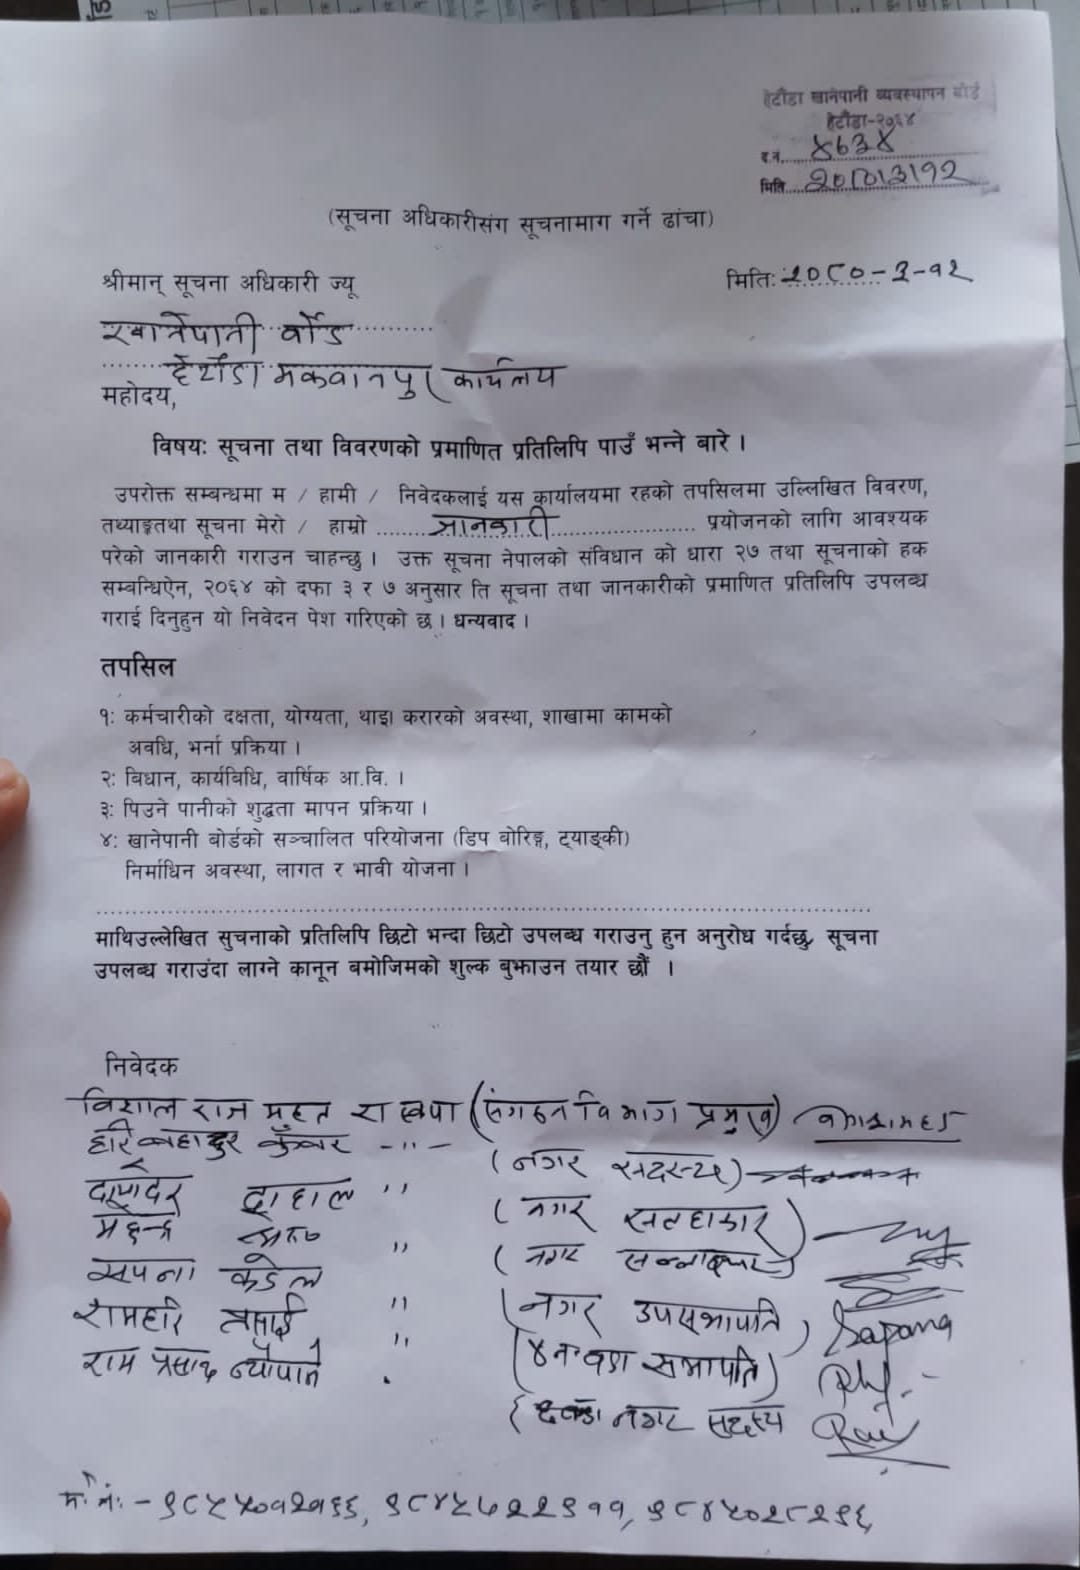 हेटौंडा खानेपानी व्यवस्थापन बोर्ड
हेटौंडा-२०६४
द.नं. ४६३४
मिति २०८०।३।१२
(सूचना अधिकारीसंग सूचनामाग गर्ने ढांचा)
श्रीमान् सूचना अधिकारी ज्यू
मिति: २०८०-३-१२
खानेपानी बोर्ड
हेटौंडा मकवानपुर कार्यलय
महोदय,
विषय: सूचना तथा विवरणको प्रमाणित प्रतिलिपि पाउँ भन्ने बारे ।
उपरोक्त सम्बन्धमा म / हामी / निवेदकलाई यस कार्यालयमा रहको तपसिलमा उल्लिखित विवरण,
तथ्याङ्कतथा सूचना मेरो / हाम्रो जानकारी प्रयोजनको लागि आवश्यक
परेको जानकारी गराउन चाहन्छु । उक्त सूचना नेपालको संविधान को धारा २७ तथा सूचनाको हक
सम्बन्धिऐन, २०६४ को दफा ३ र ७ अनुसार ति सूचना तथा जानकारीको प्रमाणित प्रतिलिपि उपलब्ध
गराई दिनुहुन यो निवेदन पेश गरिएको छ। धन्यवाद ।
तपसिल
१: कर्मचारीको दक्षता, योग्यता, थाइ। करारको अवस्था, शाखामा कामको
अवधि, भर्ना प्रक्रिया ।
२: विधान, कार्यबिधि, वार्षिक आ.वि. ।
३: पिउने पानीको शुद्धता मापन प्रक्रिया ।
४: खानेपानी बोर्डको सञ्चालित परियोजना (डिप बोरिङ्ग, ट्याङ्की)
निर्माधिन अवस्था, लागत र भावी योजना ।
माथिउल्लेखित सुचनाको प्रतिलिपि छिटो भन्दा छिटो उपलब्ध गराउनु हुन अनुरोध गर्दछु, सूचना
उपलब्ध गराउंदा लाग्ने कानून बमोजिमको शुल्क बुझाउन तयार छौं ।
निवेदक
विशाल राज महत राप्रपा (संगठन विभाग प्रमुख)
हरि बहादुर कुँवर -"- (नगर सदस्य)
दामोदर दाहाल " (नगर सल्लाहकार)
महेन्द्र " (नगर सल्लाहकार)
सपना कंडेल " (नगर उपसभापति) Sapana
रामहरि " (४ नं वडा सभापति)
राम प्रसाद न्यौपाने (नगर सदस्य
मो. नं: - ९८५५०१२१६६, ९८४५७२२९११, ९८४५०२८२९६